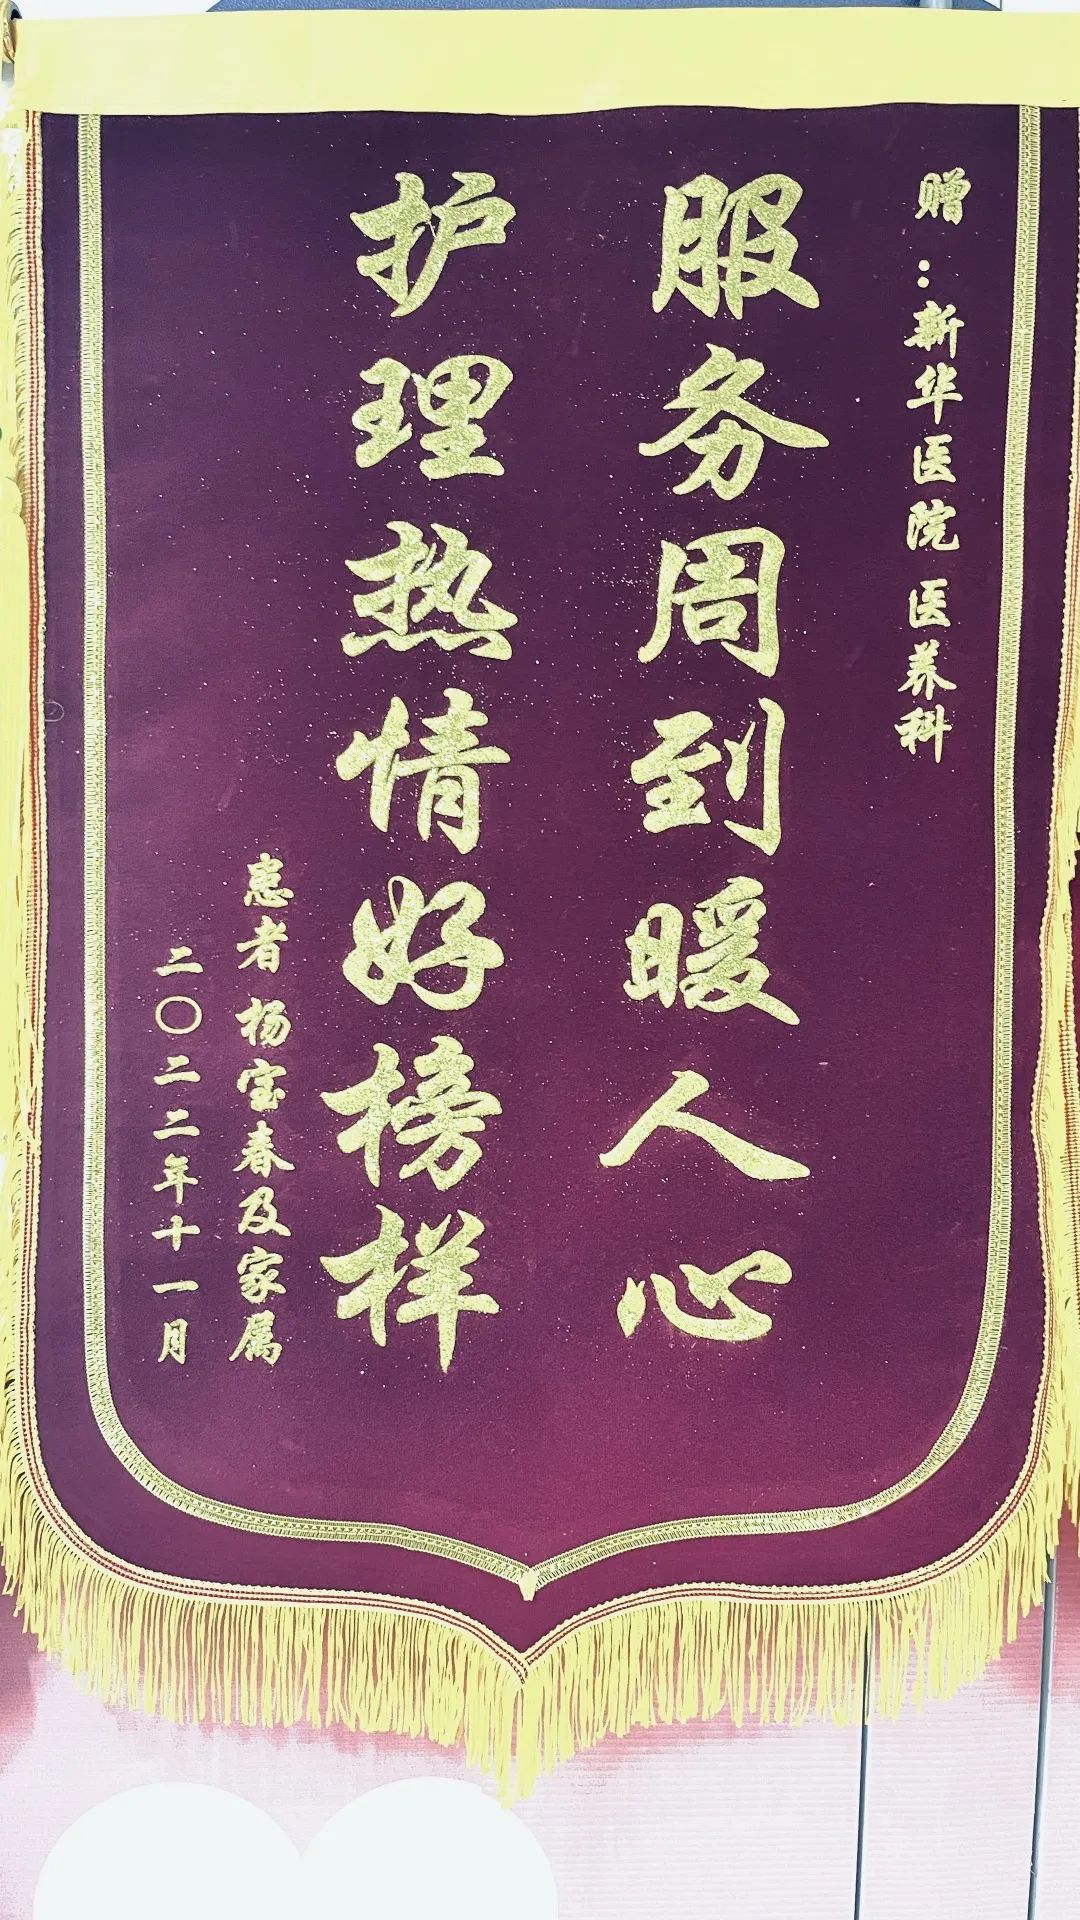 赠：新华医院 医养科
服务周到暖人心
护理热情好榜样
患者 杨宝春及家属
二〇二二年十一月